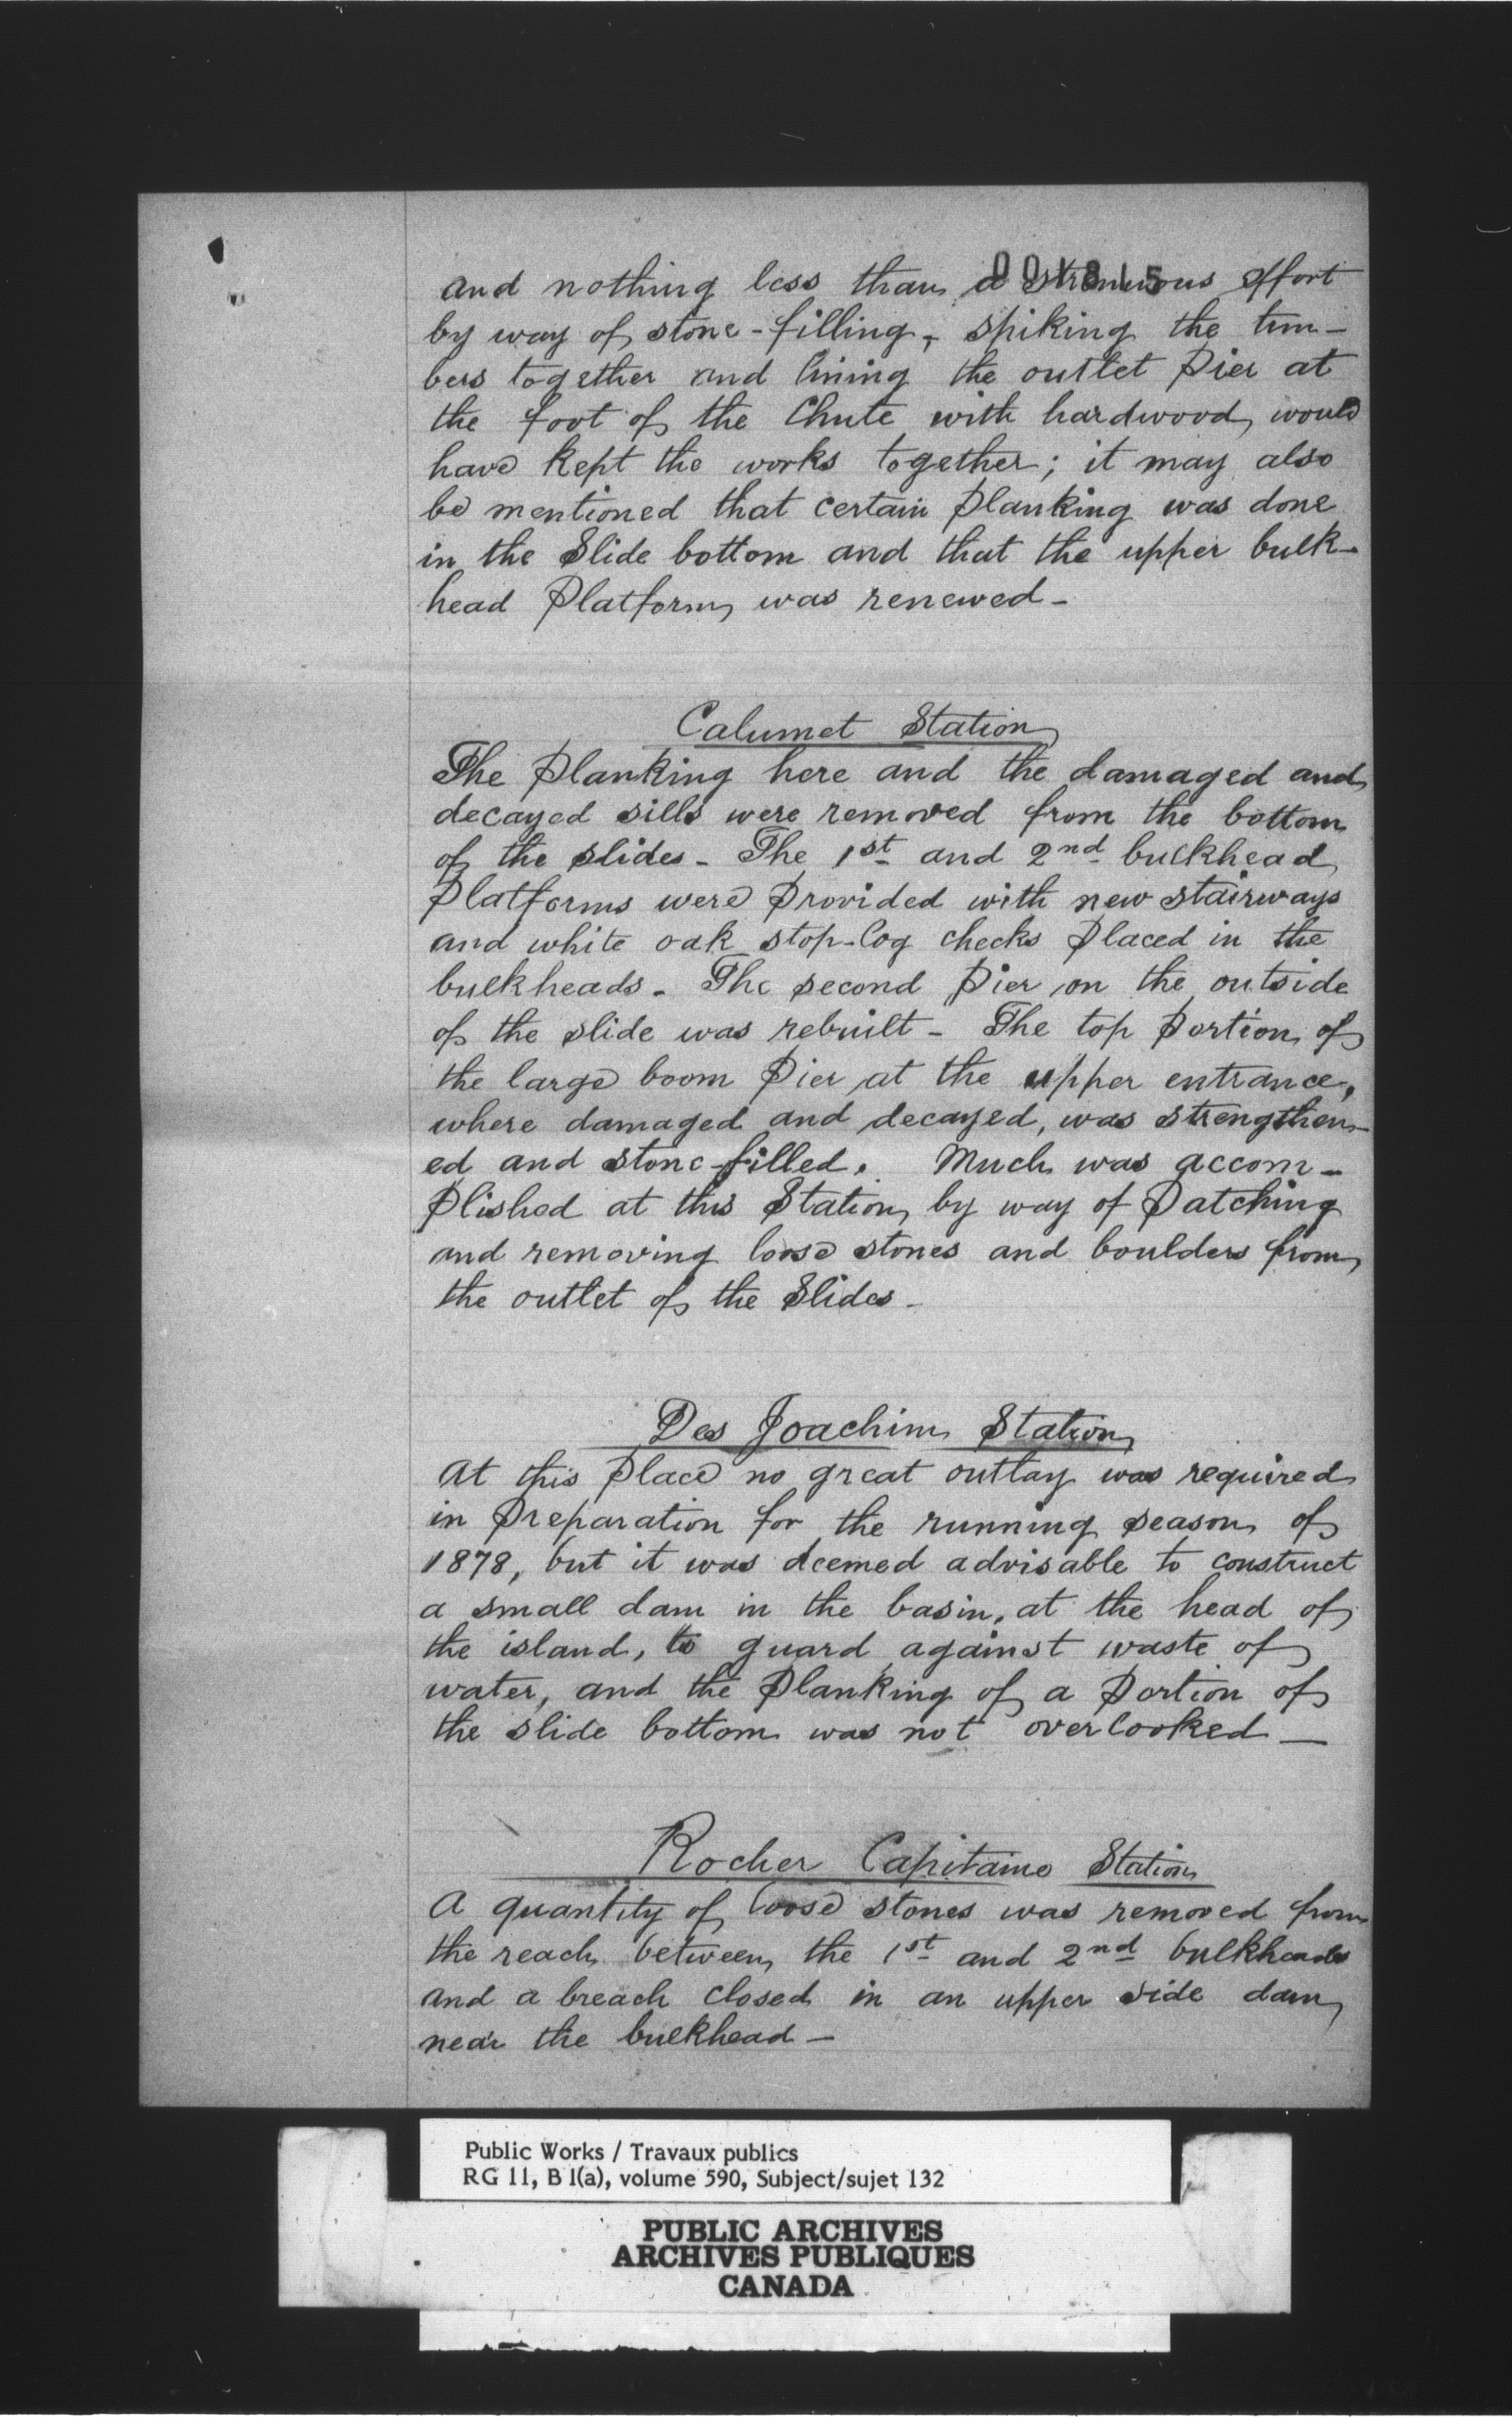 001815
and nothing less than a strenuous effort
by way of stone-filling, spiking the tim-
bers together and lining the outlet Pier at
the foot of the Chute with hardwood, would
have kept the works together; it may also
be mentioned that certain Planking was done
in the Slide bottom and that the upper bulk-
head Platform was renewed-
Calumet Station
The Planking here and the damaged and
decayed sills were removed from the bottom
of the slides- The 1st and 2nd bulkhead
Platforms were Provided with new stairways
and white oak stop-log checks Placed in the
bulkheads- The second Pier on the outside
of the slide was rebuilt- The top Portion of
the large boom Pier at the upper entrance,
where damaged and decayed, was strengthen-
ed and stone-filled. Much was accom-
Plished at this Station by way of Patching
and removing loose stones and boulders from
the outlet of the Slides-
Des Joachim Station
At this Place no great outlay was required
in Preparation for the running season of
1878, but it was deemed advisable to construct
a small dam in the basin, at the head of
the island, to guard against waste of
water, and the Planking of a Portion of
the slide bottom was not overlooked-
Rocher Capitaine Station
A quantity of loose stones was removed from
the reach between the 1st and 2nd bulkheads
and a breach closed in an upper side dam
near the bulkhead-
Public Works / Travaux publics
RG 11, B 1(a), volume 590, Subject/sujet 132
PUBLIC ARCHIVES
ARCHIVES PUBLIQUES
CANADA